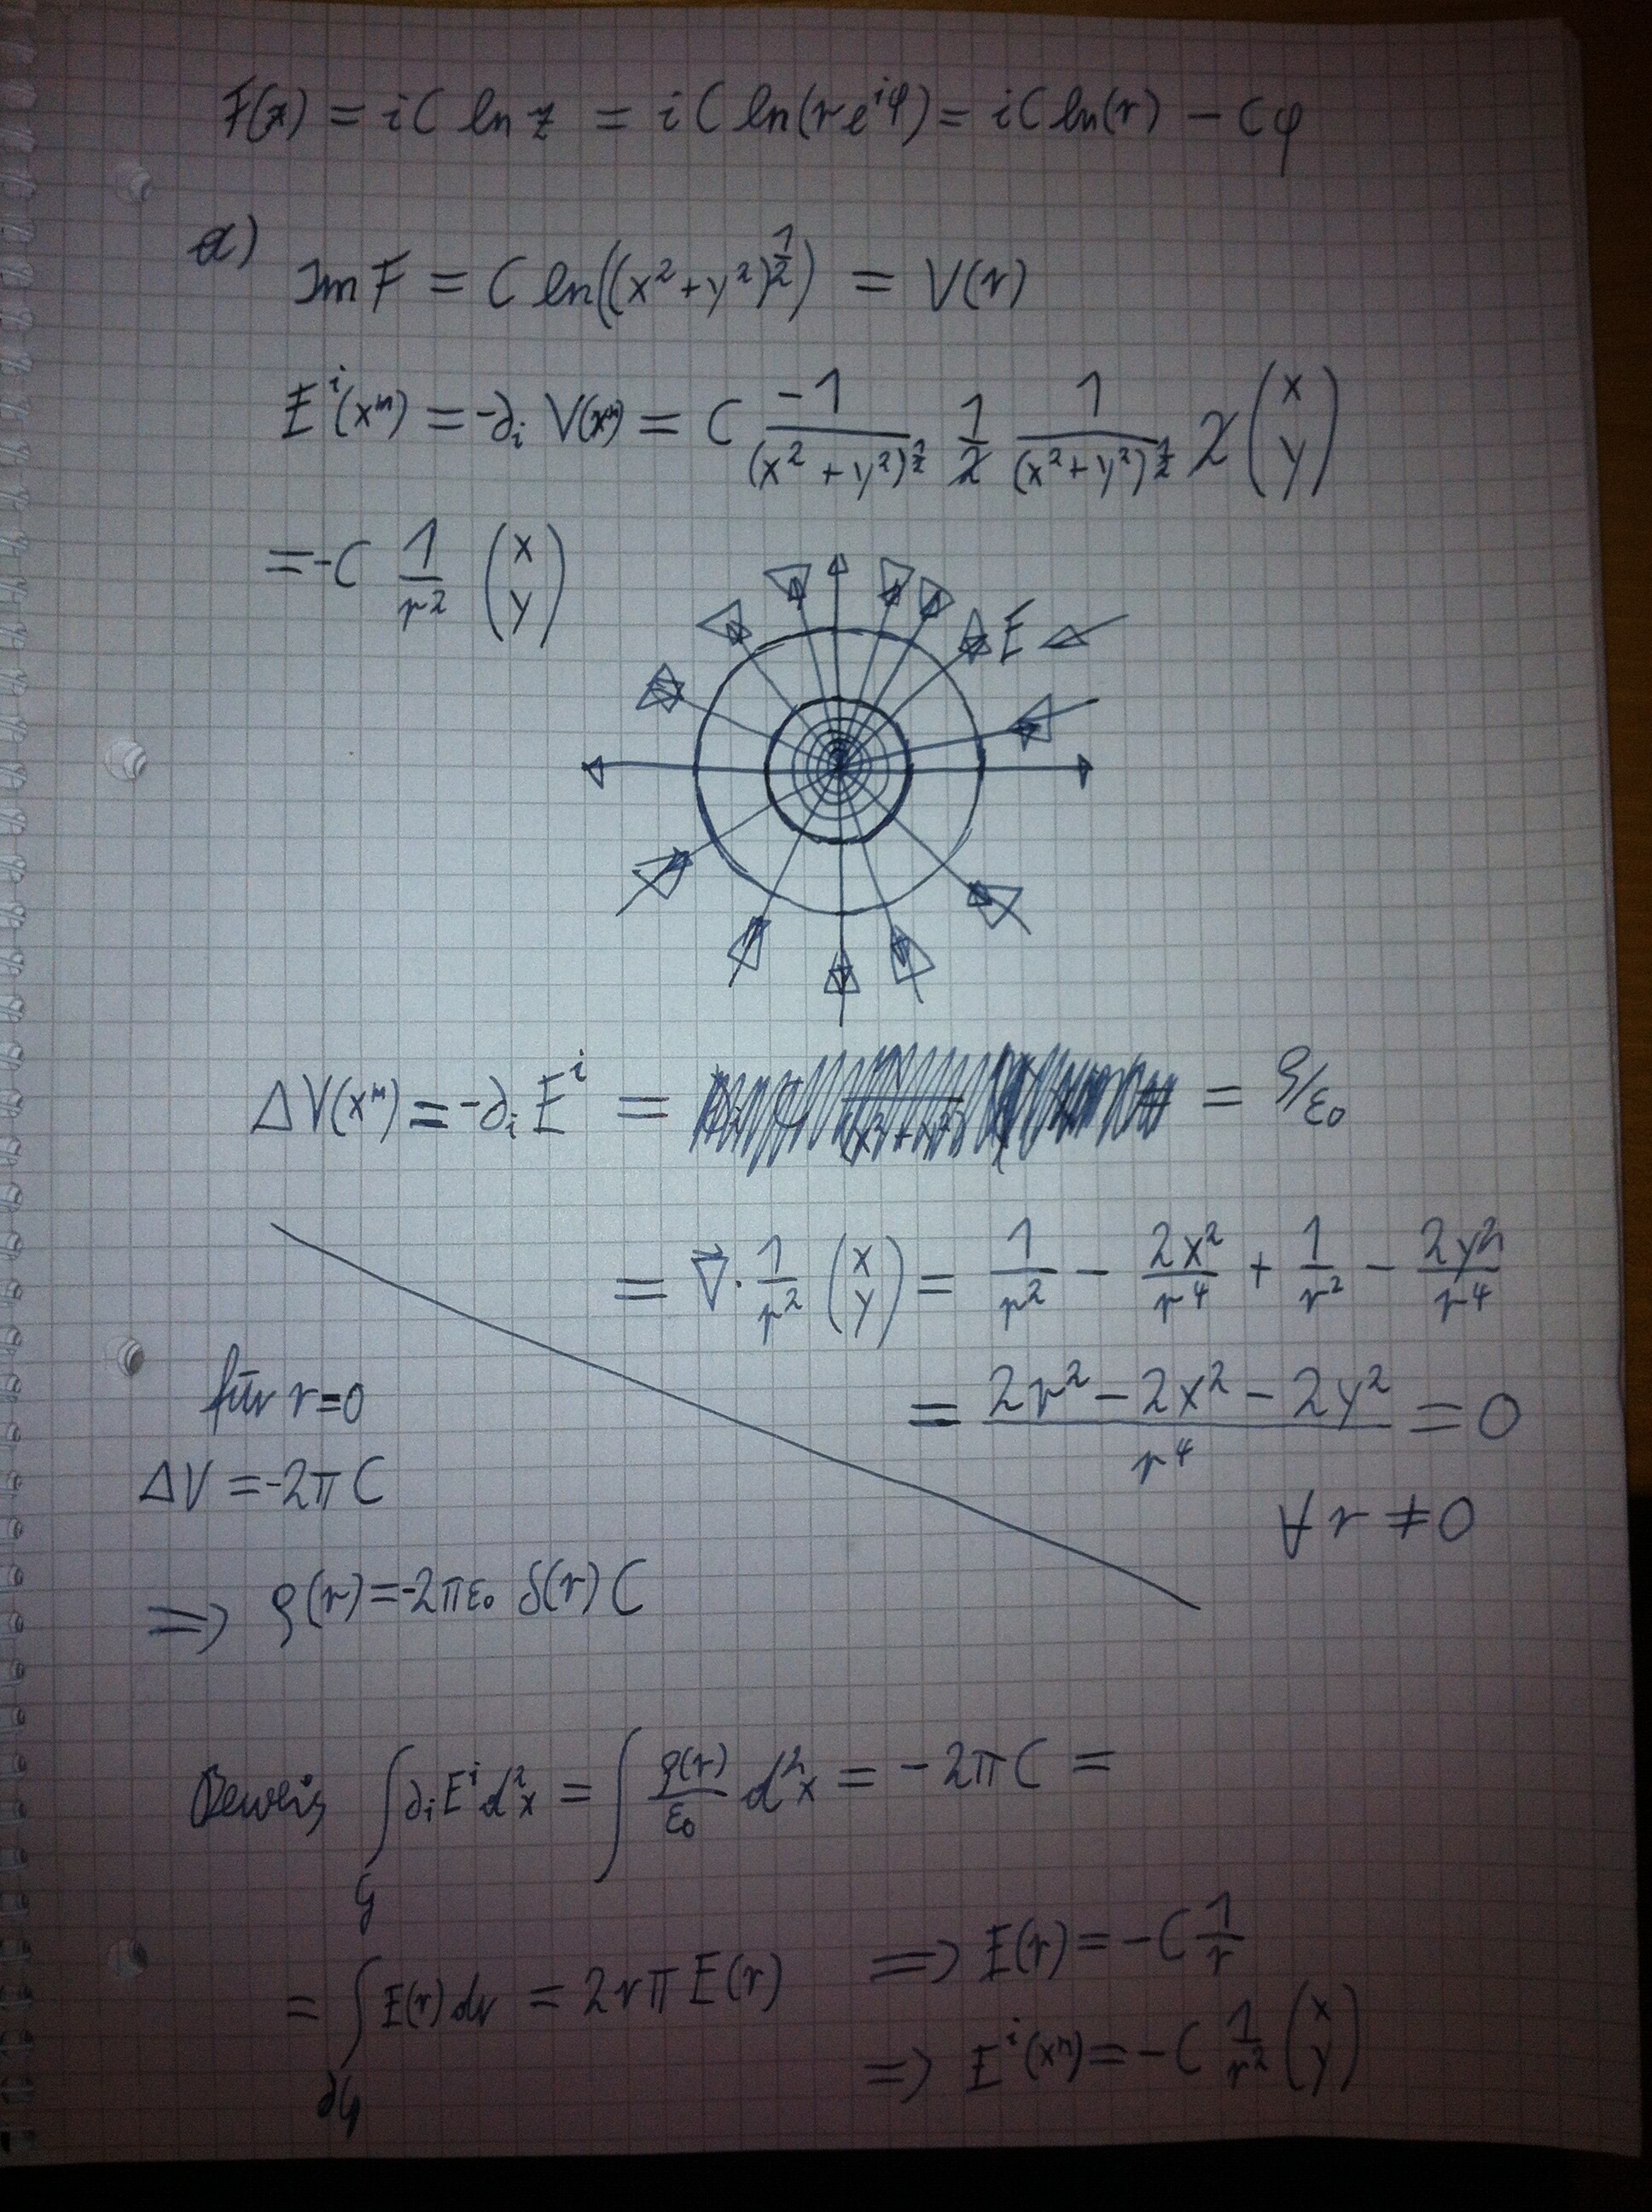 F(z) = iC ln z = iC ln(re^{iφ}) = iC ln(r) − Cφ
a) Im F = C ln((x²+y²)^{1/2}) = V(r)
E^i(x^m) = −∂_i V(x^m) = C \frac{-1}{(x²+y²)^{1/2}} \frac{1}{2} \frac{1}{(x²+y²)^{1/2}} 2 \binom{x}{y}
= −C \frac{1}{r²} \binom{x}{y}
E
ΔV(x^m) = −∂_i E^i = = ρ/ε₀
= \vec{∇} · \frac{1}{r²} \binom{x}{y} = \frac{1}{r²} − \frac{2x²}{r⁴} + \frac{1}{r²} − \frac{2y²}{r⁴}
= \frac{2r² − 2x² − 2y²}{r⁴} = 0
∀ r ≠ 0
für r=0
ΔV = −2πC
=> ρ(r) = −2πε₀ δ(r) C
Beweis ∫_G ∂_i E^i d²x = ∫ \frac{ρ(r)}{ε₀} d²x = −2πC =
= ∫_{∂G} E(r) dr = 2rπ E(r) => E(r) = −C \frac{1}{r}
=> E^i(x^m) = −C \frac{1}{r²} \binom{x}{y}